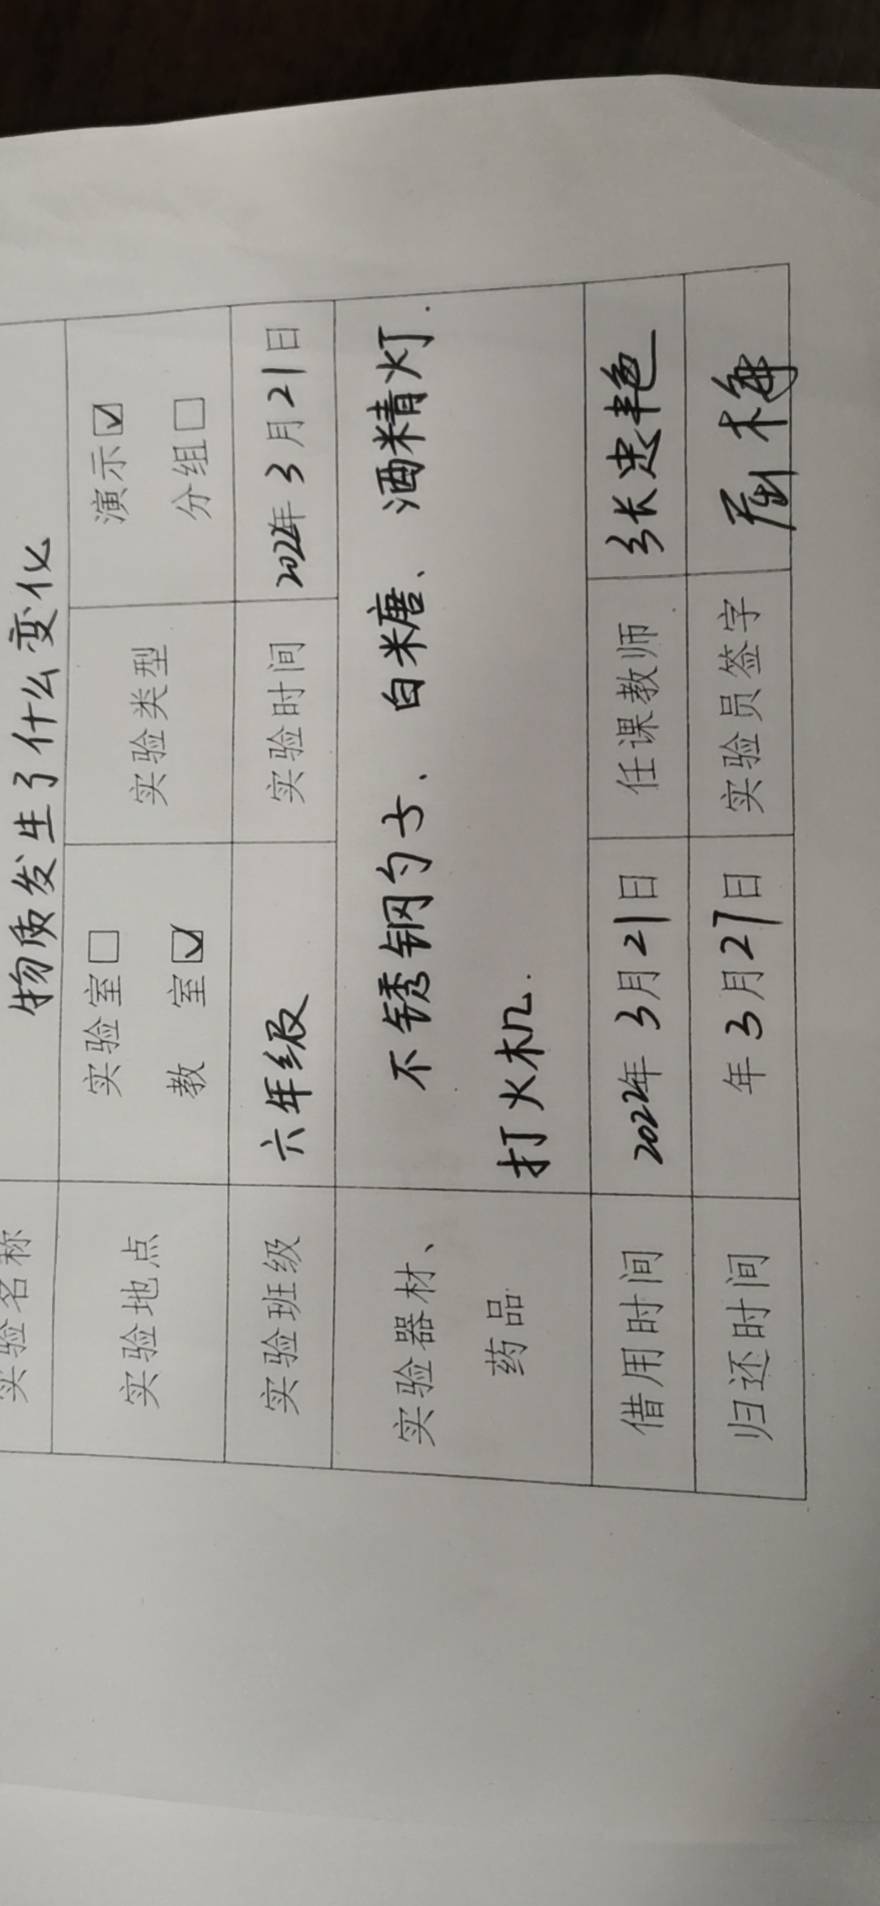 实验名称 物质发生了什么变化
实验地点 实验室□ 实验类型 演示☑
教 室☑ 分组□
实验班级 六年级 实验时间 2022年3月21日
实验器材、 不锈钢勺子、白糖、酒精灯.
药品 打火机.
借用时间 2022年3月21日 任课教师 张忠艳
归还时间 年3月27日 实验员签字 屈梅